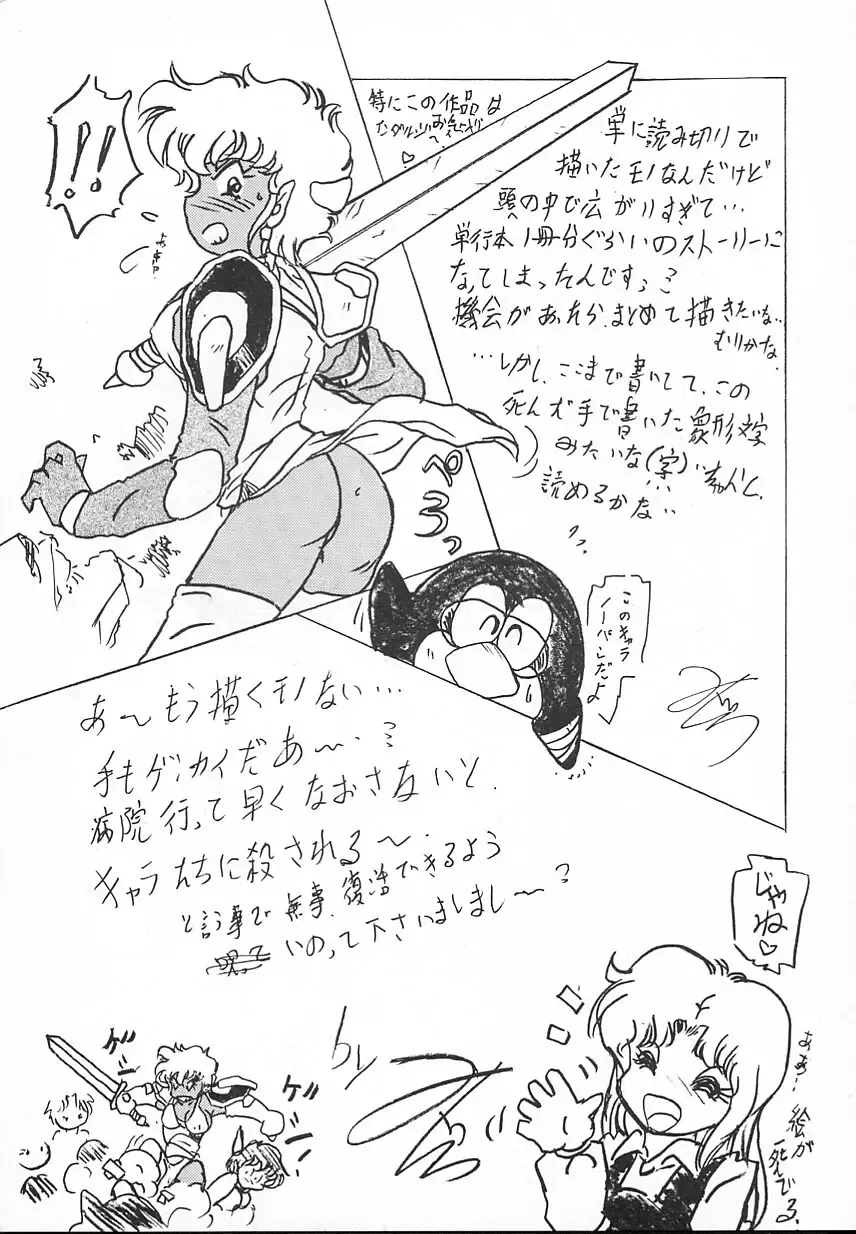 !!
特にこの作品は
単に読み切りで
描いたモノなんだけど
頭の中で広がりすぎて…
単行本1冊分ぐらいのストーリーに
なってしまったんですぅ
機会があったらまとめて描きたいな
むりかな
…しかし、ここまで書いてて、この
死んだ手で書いた象形文字
みたいな(字)ちゃんと、
読めるかな
ぺろっ
このキャラ
ノーパンだよ
あ〜もう描くモノない…
手もゲンカイだあ〜
病院行って早くなおさないと、
キャラたちに殺される〜
と言う事で無事、復活できるよう
いのって下さいましまし〜
じゃね♡
ああ…
絵が
死んでる
by
ゲシ
ゲシ